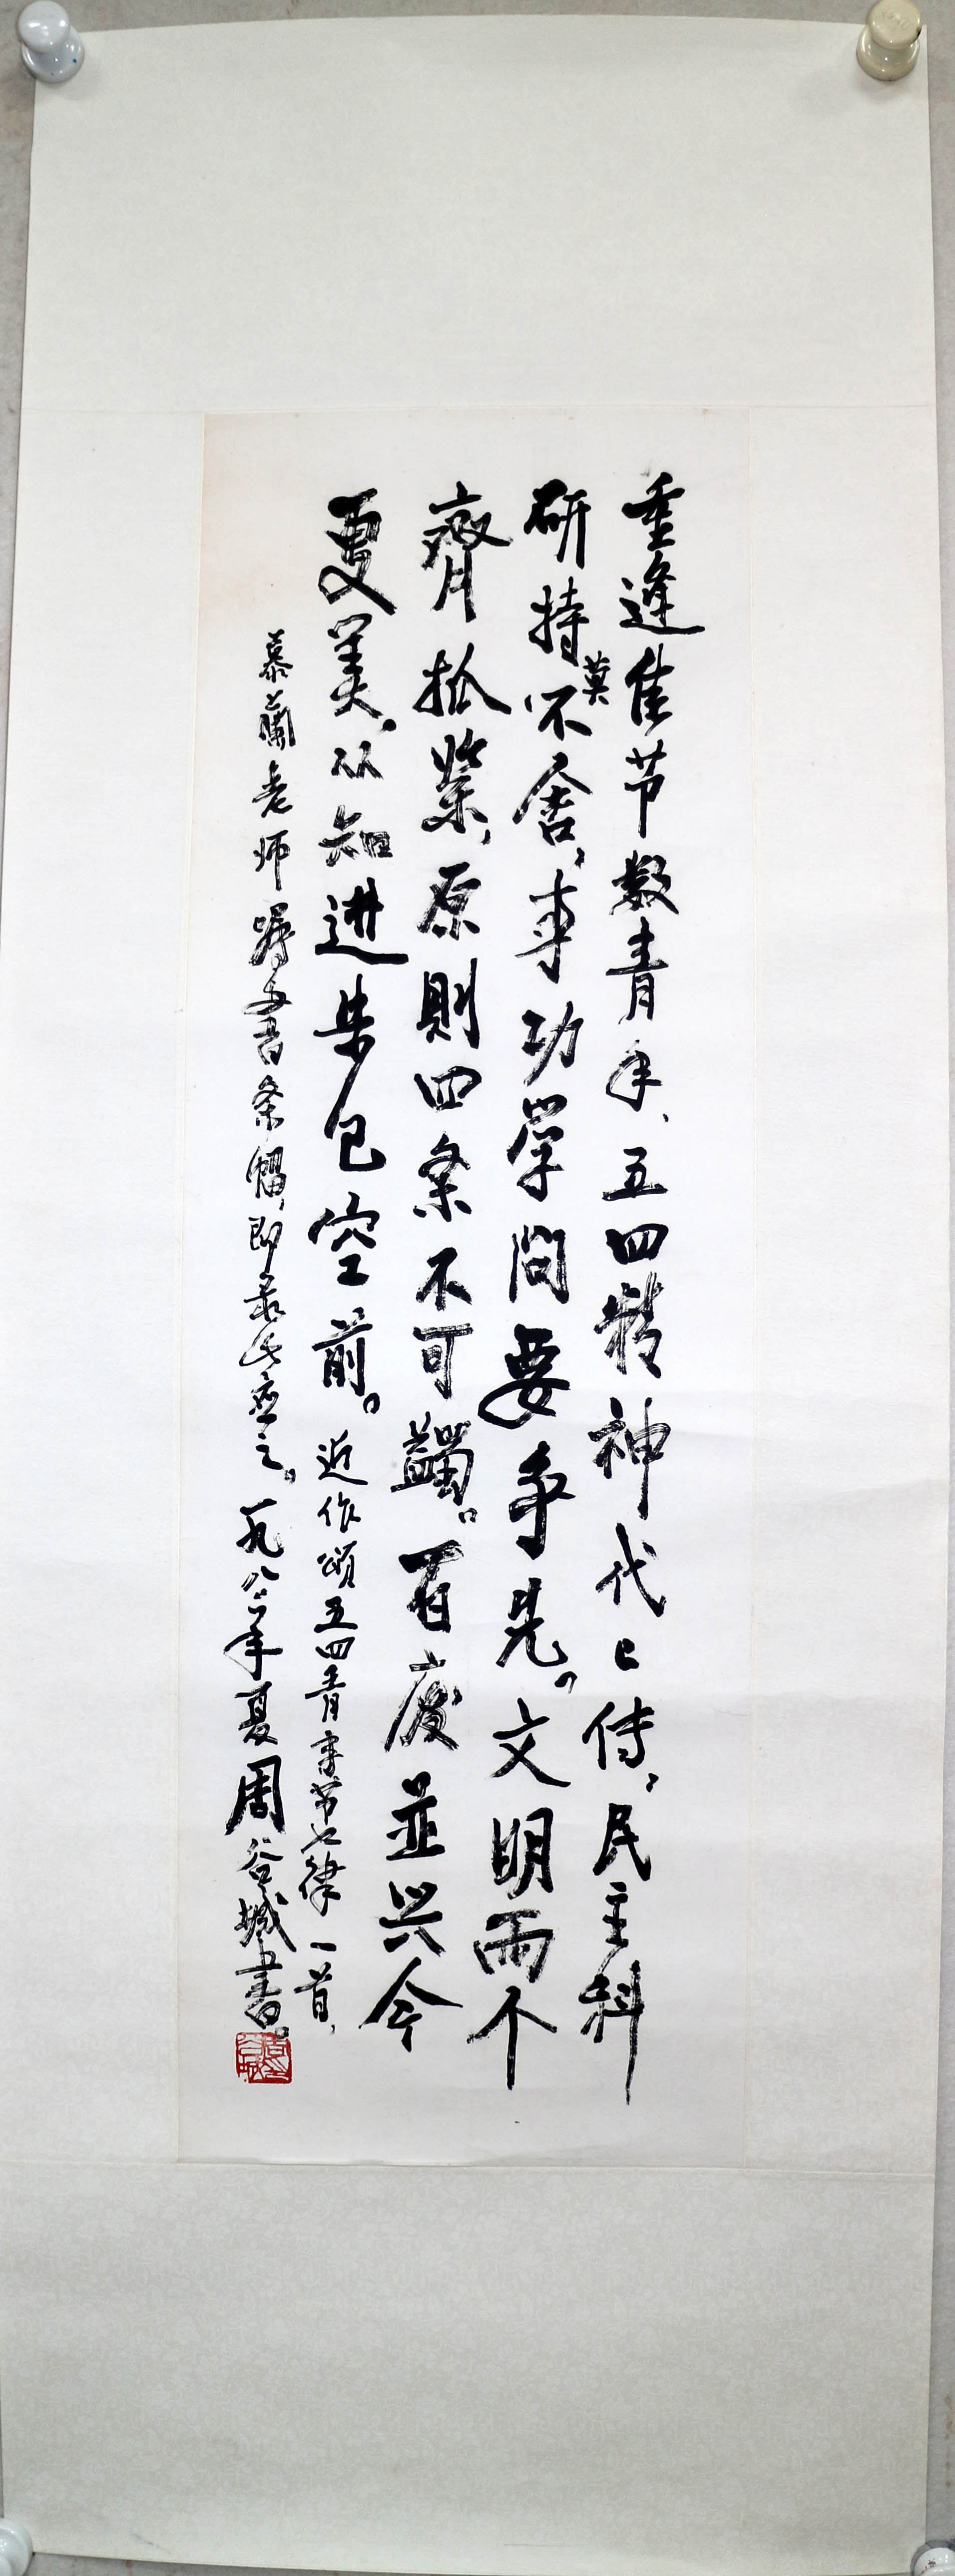 重逢佳节数青年、五四精神代代传，民主科
研持莫不舍，事功学问要争先。文明两个
齊抓紧，原則四条不可蠲。百废並兴今
更美。从知进步已空前。近作頌五四青年节七律一首，
慕蘭老师嘱书条幅，即录此应之。一九八六年夏周谷城書。